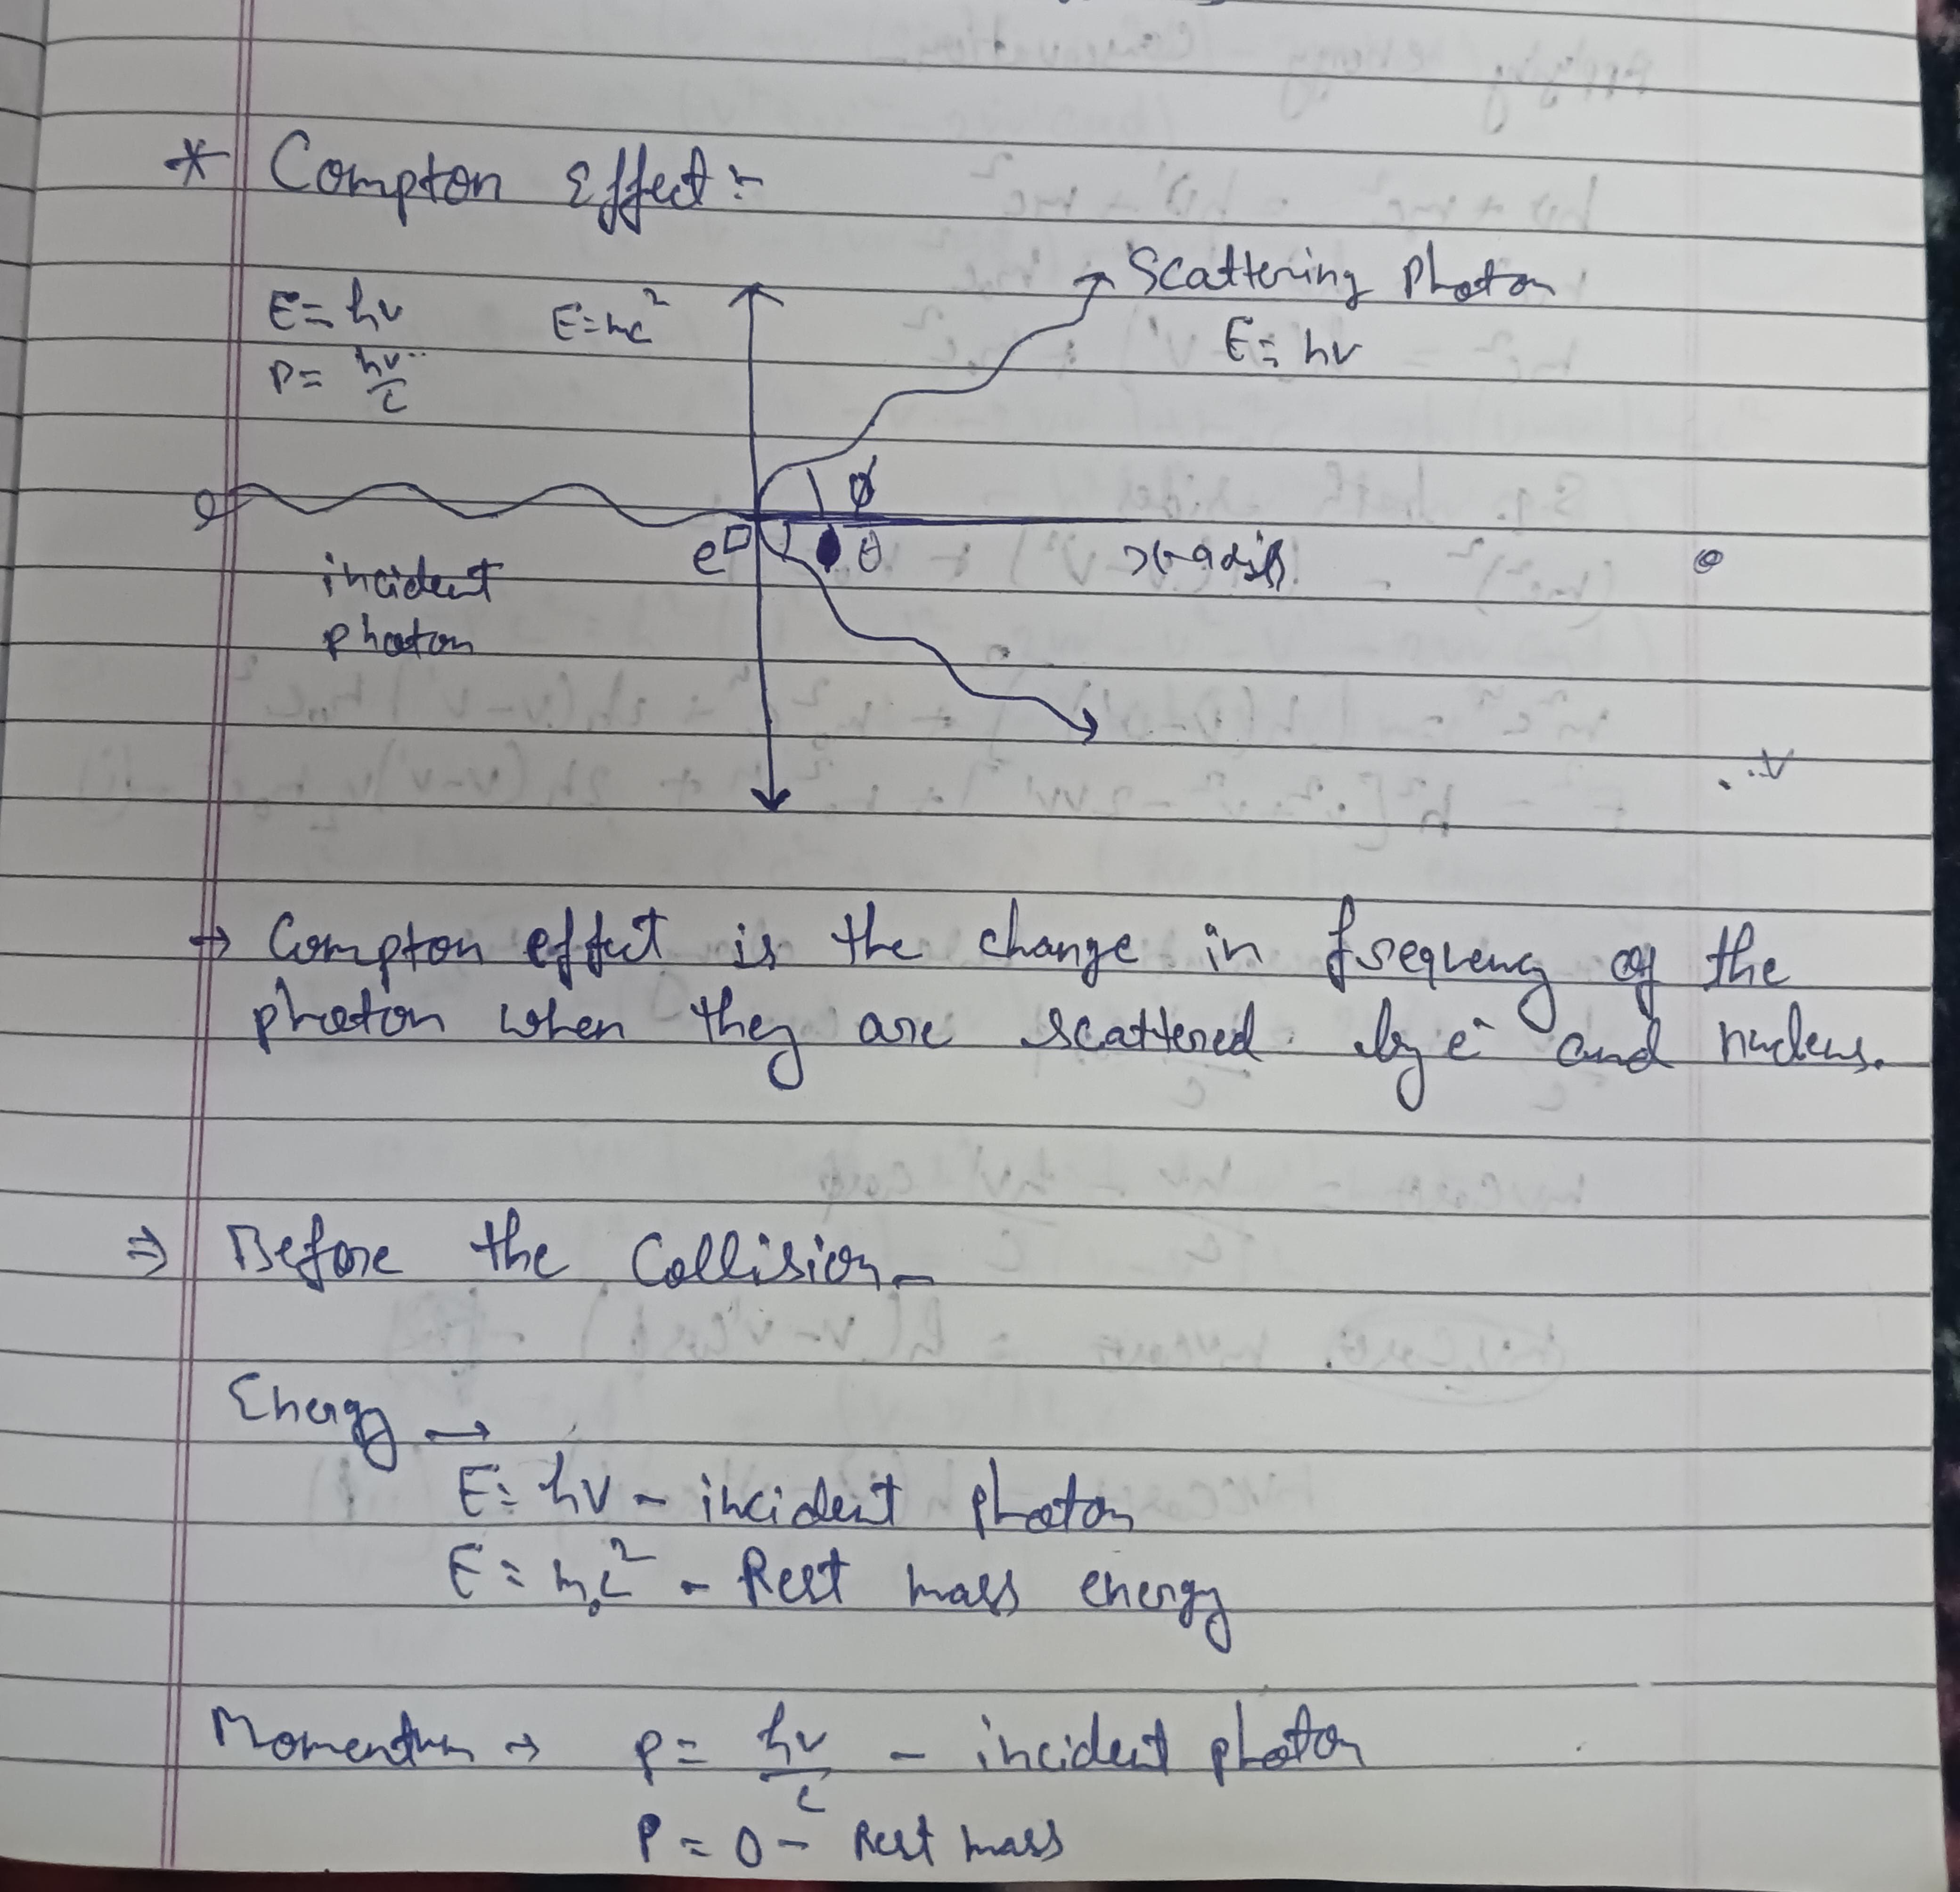 * Compton Effect :-
Scattering Photon
E = hν E = mc²
E = hν
P = hν/c
ϕ
e θ x-axis
incident
photon
→ Compton effect is the change in frequency of the
photon when they are scattered by e⁻ and nucleus.
⇒ Before the Collision -
Energy →
E = hν - incident photon
E = m₀c² - Rest mass energy
Momentum → P = hν/c - incident photon
P = 0 - Rest mass